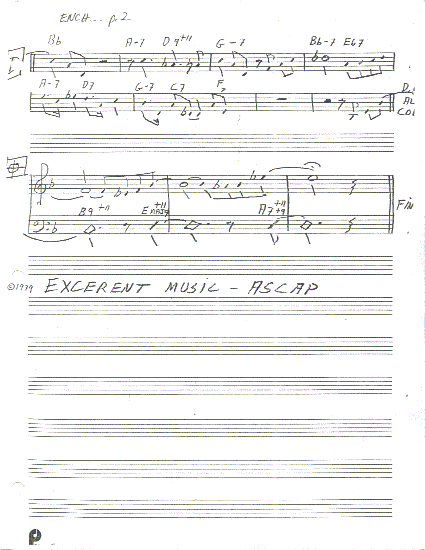 ENCH... p.2
Bb A-7 D9+11 G-7 Bb-7 Eb7
A-7 D7 G-7 C7 F
AL
B9+11 Emaj9 A7+11+9
FIN
©1979 EXCERENT MUSIC - ASCAP